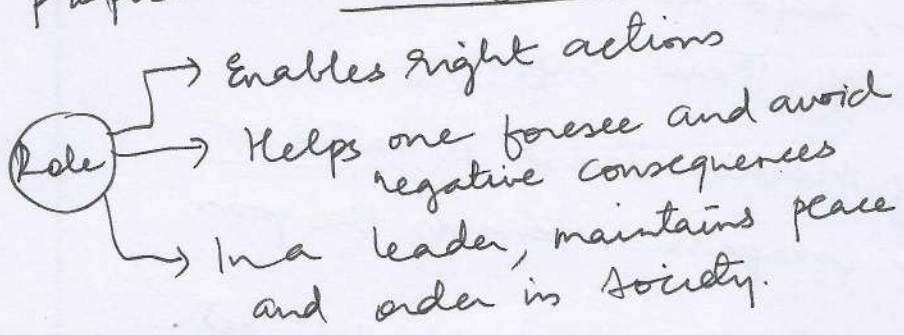 Enables right actions
Role
Helps one foresee and avoid
negative consequences
In a leader, maintains peace
and order in society.